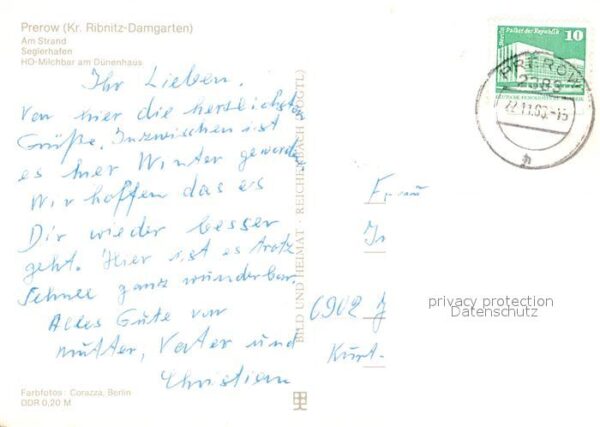 Prerow (Kr. Ribnitz-Damgarten)
Am Strand
Seglerhafen
HO-Milchbar am Dünenhaus
Ihr Lieben.
Von hier die herzlichsten
Grüße. Inzwischen ist
es hier Winter geworden
Wir hoffen das es
Dir wieder besser
geht. Hier ist es trotz
Schnee ganz wunderbar.
Alles Gute von
Mutter, Vater und
Christian
Farbfotos: Corazza, Berlin
DDR 0,20 M
BILD UND HEIMAT · REICHENBACH (VOGTL)
Berlin Palast der Republik
10
DEUTSCHE DEMOKRATISCHE
PREROW
2383
Frau
6902 J
Kurt-
privacy protection
Datenschutz